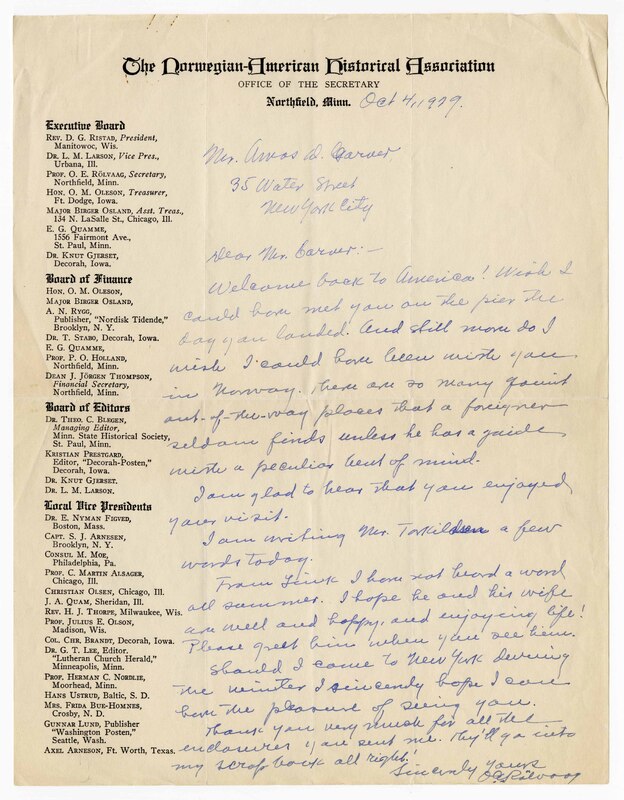 The Norwegian-American Historical Association
OFFICE OF THE SECRETARY
Northfield, Minn. Oct 4, 1929.
Executive Board
REV. D. G. RISTAD, President,
Manitowoc, Wis.
DR. L. M. LARSON, Vice Pres.,
Urbana, Ill.
PROF. O. E. RÖLVAAG, Secretary,
Northfield, Minn.
HON. O. M. OLESON, Treasurer,
Ft. Dodge, Iowa.
MAJOR BIRGER OSLAND, Asst. Treas.,
134 N. LaSalle St., Chicago, Ill.
E. G. QUAMME,
1556 Fairmont Ave.,
St. Paul, Minn.
DR. KNUT GJERSET,
Decorah, Iowa.
Board of Finance
HON. O. M. OLESON,
MAJOR BIRGER OSLAND,
A. N. RYGG,
Publisher, "Nordisk Tidende,"
Brooklyn, N. Y.
DR. T. STABO, Decorah, Iowa.
E. G. QUAMME,
PROF. P. O. HOLLAND,
Northfield, Minn.
DEAN J. JÖRGEN THOMPSON,
Financial Secretary,
Northfield, Minn.
Board of Editors
DR. THEO. C. BLEGEN,
Managing Editor,
Minn. State Historical Society,
St. Paul, Minn.
KRISTIAN PRESTGARD,
Editor, "Decorah-Posten,"
Decorah, Iowa.
DR. KNUT GJERSET.
DR. L. M. LARSON.
Local Vice Presidents
DR. E. NYMAN FIGVED,
Boston, Mass.
CAPT. S. J. ARNESEN,
Brooklyn, N. Y.
CONSUL M. MOE,
Philadelphia, Pa.
PROF. C. MARTIN ALSAGER,
Chicago, Ill.
CHRISTIAN OLSEN, Chicago, Ill.
J. A. QUAM, Sheridan, Ill.
REV. H. J. THORPE, Milwaukee, Wis.
PROF. JULIUS E. OLSON,
Madison, Wis.
COL. CHR. BRANDT, Decorah, Iowa.
DR. G. T. LEE, Editor,
"Lutheran Church Herald,"
Minneapolis, Minn.
PROF. HERMAN C. NORDLIE,
Moorhead, Minn.
HANS USTRUD, Baltic, S. D.
MRS. FRIDA BUE-HOMNES,
Crosby, N. D.
GUNNAR LUND, Publisher
"Washington Posten,"
Seattle, Wash.
AXEL ARNESON, Ft. Worth, Texas.
Mr. Amos D. Carver
35 Water Street
New York City
Dear Mr. Carver:-
Welcome back to America! Wish I
could have met you on the pier the
day you landed. And still more do I
wish I could have been with you
in Norway. There are so many quaint
out-of-the-way places that a foreigner
seldom finds unless he has a guide
with a peculiar bent of mind.
I am glad to hear that you enjoyed
your visit.
I am writing Mr. Torkildsen a few
words today.
From I have not heard a word
all summer. I hope he and his wife
are well and happy, and enjoying life!
Please greet him when you see him.
Should I come to New York during
the winter I sincerely hope I can
have the pleasure of seeing you.
Thank you very much for all the
enclosures you sent me. They'll go into
my scrap book all right!
Sincerely yours
O.E. Rölvaag